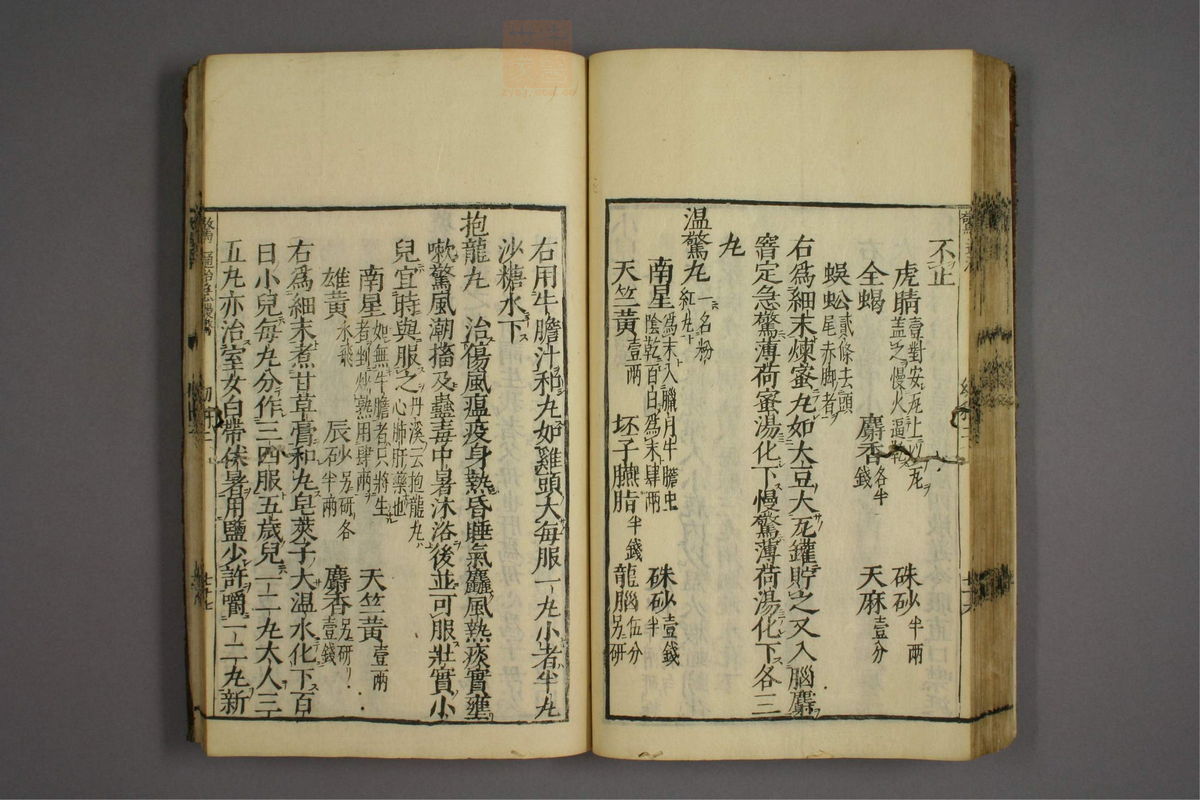 不止
虎睛壹對安瓦上以瓦蓋之慢火逼乾 硃砂半兩
全蝎 麝香各半錢 天麻壹分
蜈蚣貳條去頭尾赤脚者
右爲細末煉蜜丸如大豆大瓦罐貯之又入腦麝
窨定急驚薄荷蜜湯化下慢驚薄荷湯化下各三
丸
温驚丸一名粉紅丸
南星爲末入臘月牛膽中陰乾百日爲末肆兩 硃砂壹錢半
天竺黄壹兩 坯子臙脂半錢 龍腦伍分另研
右用牛膽汁和丸如雞頭大每服一丸小者半丸
沙糖水下
抱龍丸 治傷風瘟疫身熱昏睡氣麤風熱痰實壅
嗽驚風潮搐及蠱毒中暑沐浴後並可服壯實小
兒宜時與服之丹溪云抱龍丸心肺肝藥也
南星如無牛膽者只將生者剉炒熟用肆兩 天竺黄壹兩
雄黄水飛 辰砂另研各半兩 麝香另研壹錢
右爲細末煮甘草膏和丸皂莢子大温水化下百
日小兒每丸分作三四服五歲兒一二丸大人三
五丸亦治室女白帶伏暑用鹽少許嚼一二丸新